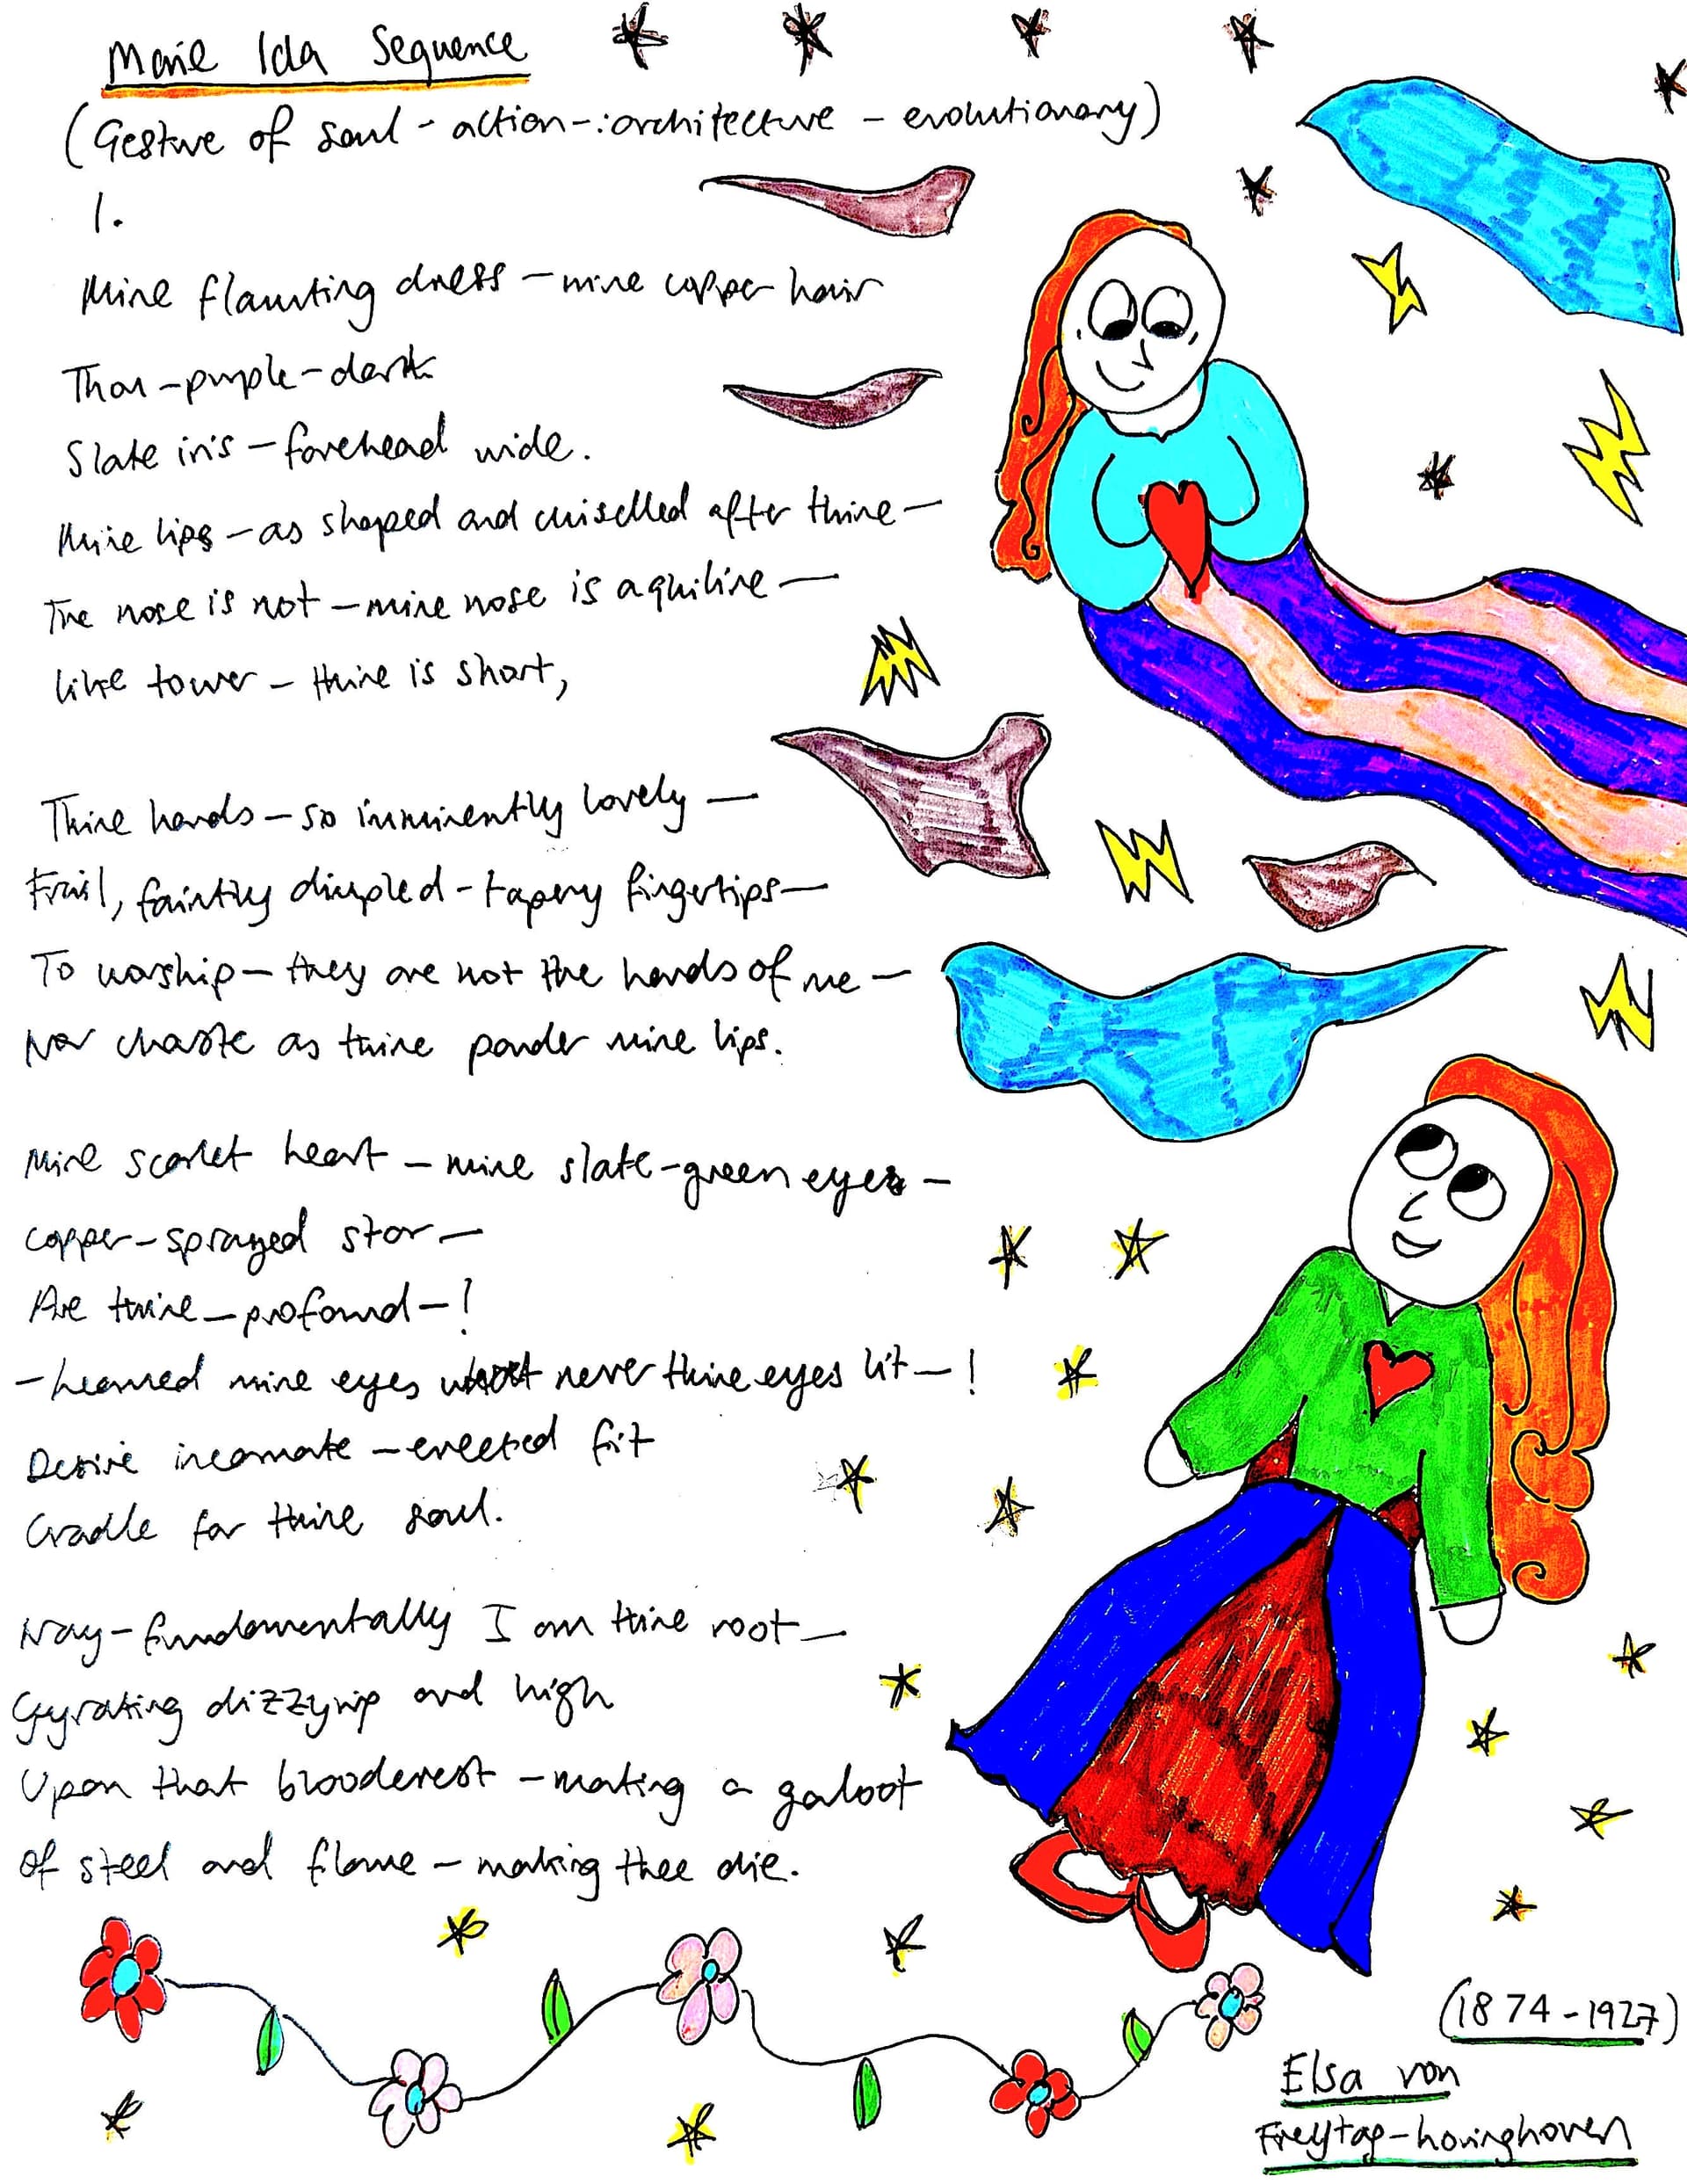 Marie Ida Sequence
(Gesture of soul - action-:architecture - evolutionary)
1.
Mine flaunting dress – mine copper hair
Thou – purple – dark
Slate iris – forehead wide.
Mine lips – as shaped and chiselled after thine –
The nose is not – mine nose is aquiline –
like tower – thine is short,
Thine hands – so imminently lovely –
Frail, faintly dimpled – tapery fingertips –
To worship – they are not the hands of me –
Nor chaste as thine ponder mine lips.
Mine scarlet heart – mine slate-green eyes –
copper-sprayed star –
Are thine – profound – !
– learned mine eyes what never thine eyes lit – !
Desire incarnate – erected fit
Cradle for thine soul.
Nay – fundamentally I am thine root –
Gyrating dizzying and high
Upon that bloodcrest – mating a galoot
of steel and flame – making thee die.
(1874-1927)
Elsa von
Freytag-hovinghoven